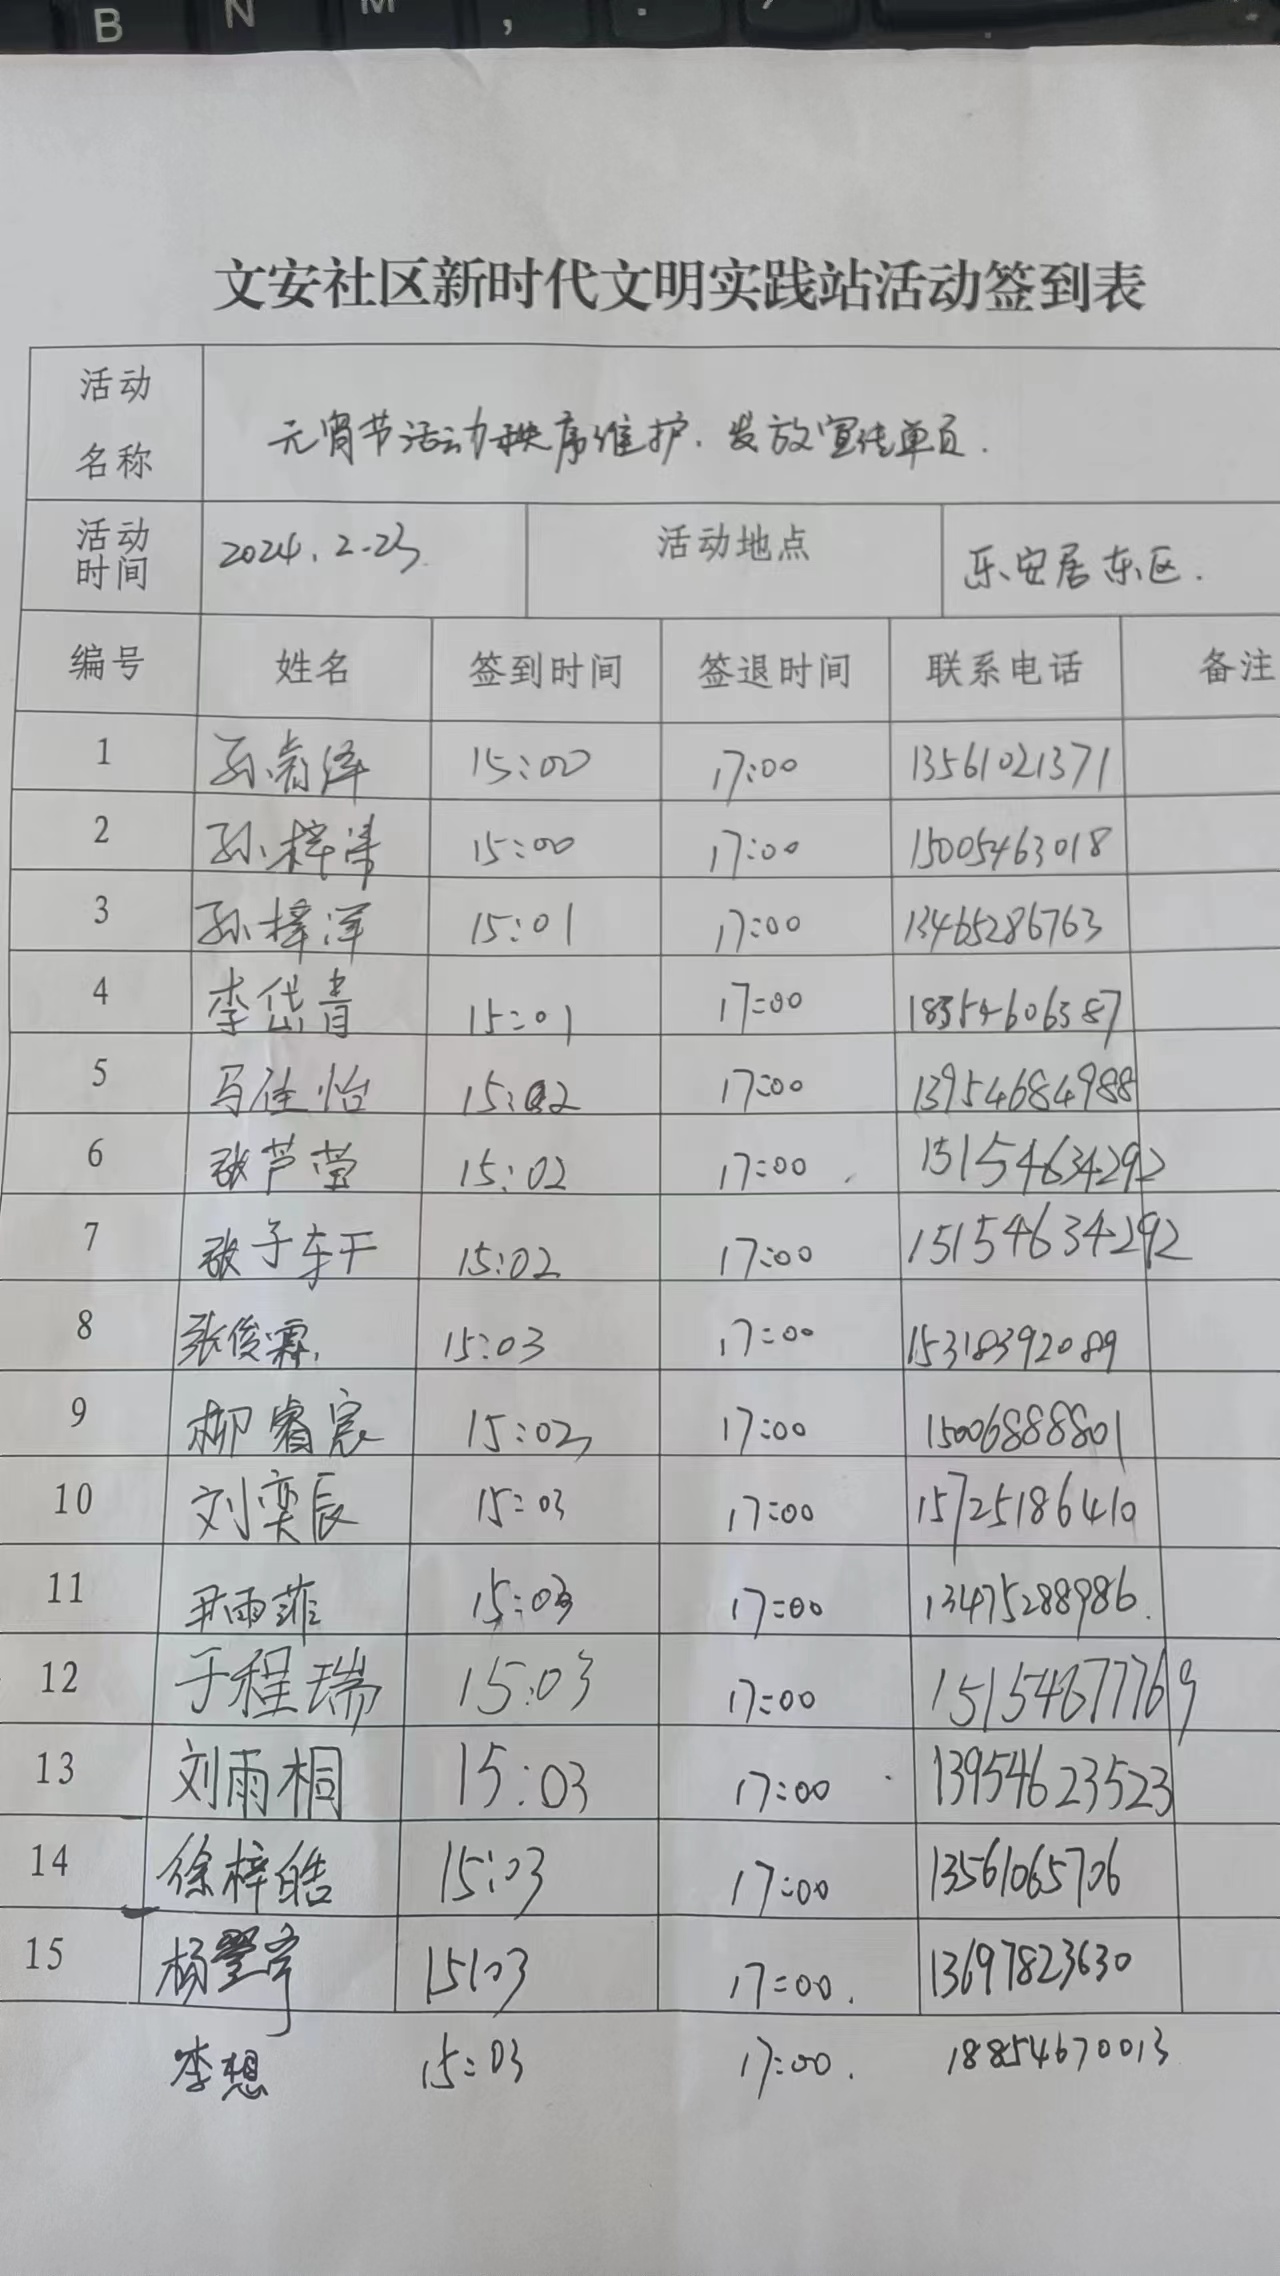 B N M ,
文安社区新时代文明实践站活动签到表
活动名称 元宵节活动秩序维护、发放宣传单页.
活动时间 2024.2.23. 活动地点 乐安居东区.
编号 姓名 签到时间 签退时间 联系电话 备注
1 15:00 17:00 13561021371
2 孙梓涛 15:00 17:00 15005463018
3 孙梓洋 15:01 17:00 13465286763
4 李岱青 15:01 17:00 18354606387
5 马佳怡 15:02 17:00 13954684988
6 张芦莹 15:02 17:00 15154634292
7 张子轩 15:02 17:00 15154634292
8 张俊霖. 15:03 17:00 15318392089
9 柳睿宸 15:02 17:00 15006888801
10 刘奕辰 15:03 17:00 15725186410
11 尹雨菲 15:03 17:00 13475288986.
12 于程瑞 15:03 17:00 15154677769
13 刘雨桐 15:03 17:00 13954623523
14 徐梓皓 15:03 17:00 13561065706
15 15:03 17:00. 13697823630
李想 15:03 17:00. 18854670013